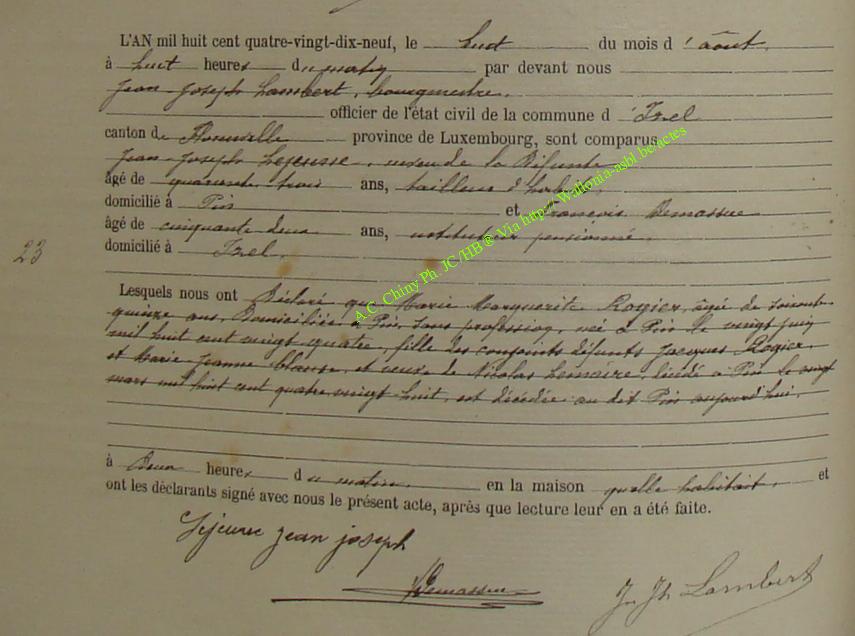 L'AN mil huit cent quatre-vingt-dix-neuf, le huit du mois d'août,
à huit heures du matin par devant nous
Jean Joseph Lambert, bourgmestre,
officier de l'état civil de la commune d'Izel
canton de Florenville province de Luxembourg, sont comparus
Jean Joseph Lejeune, neveu de la défunte
âgé de quarante trois ans, tailleur d'habits,
domicilié à Pin et François Demasseu
âgé de cinquante deux ans, instituteur pensionné,
23
domicilié à Izel.
Lesquels nous ont déclaré que Marie Marguerite Rogier, âgée de soixante
quinze ans, domiciliée à Pin, sans profession, née à Pin le vingt juin
mil huit cent vingt quatre, fille des conjoints défunts Jacques Rogier,
et Marie Jeanne, et veuve de Nicolas Lemaire, décédé à Pin le vingt
mars mil huit cent quatre vingt huit, est décédée au dit Pin aujourd'hui,
à deux heures du matin, en la maison qu'elle habitait, et
ont les déclarants signé avec nous le présent acte, après que lecture leur en a été faite.
Lejeune jean joseph
Demasseu
J. Jh Lambert
A.C. Chiny Ph. JC/HB ® Via http://Wallonia-asbl.be/actes